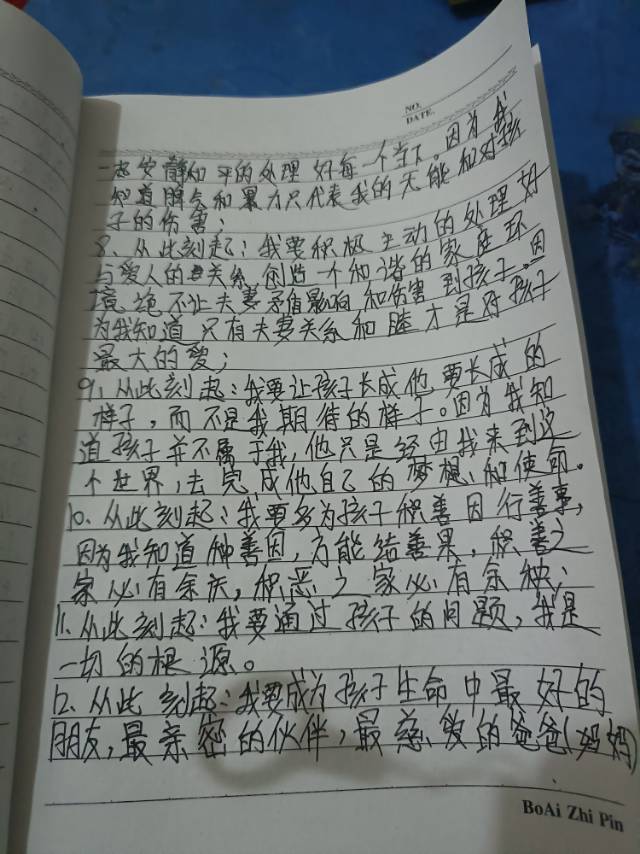 NO.
DATE.
一定安静和平的处理好每一个当下。因为我
知道脾气和暴力只代表我的无能和对孩
子的伤害;
8、从此刻起:我要积极主动的处理好
与爱人的关系,创造一个和谐的家庭环
境绝不让夫妻矛盾影响和伤害到孩子。因
为我知道只有夫妻关系和睦才是对孩子
最大的爱;
9、从此刻起:我要让孩子长成他要长成的
样子,而不是我期待的样子。因为我知
道孩子并不属于我,他只是经由我来到这
个世界,去完成他自己的梦想、和使命。
10、从此刻起:我要多为孩子积善因行善事,
因为我知道种善因,方能结善果,积善之
家必有余庆,积恶之家必有余殃;
11、从此刻起:我要通过孩子的问题,我是
一切的根源。
12、从此刻起:我要成为孩子生命中最好的
朋友,最亲密的伙伴,最慈爱的爸爸(妈妈)
BoAi Zhi Pin